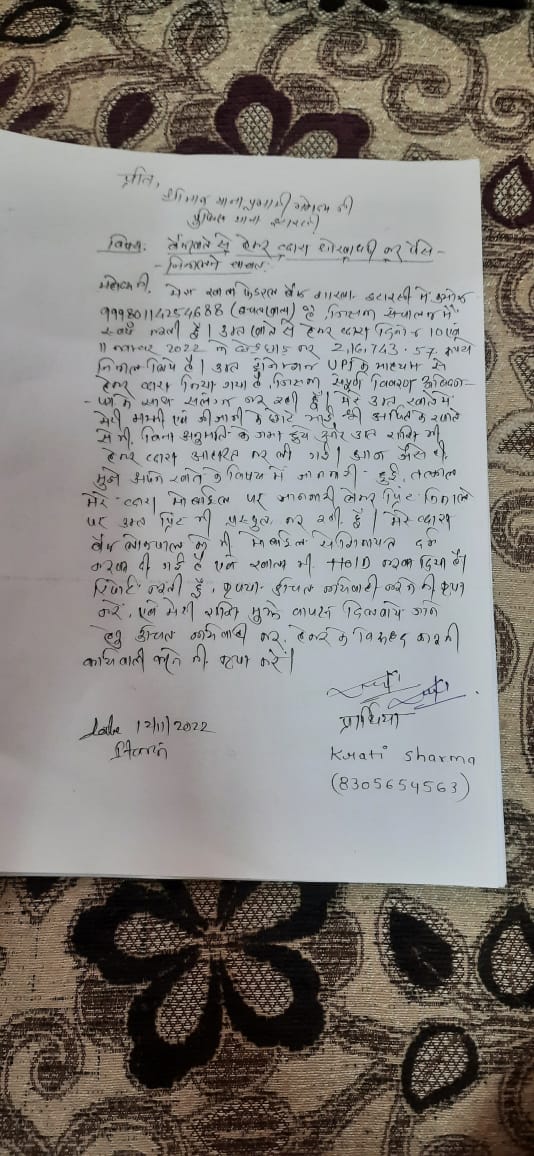 प्रति,
श्रीमान थाना प्रभारी महोदय जी
पुलिस थाना इटारसी
विषय: बैंक खाते से हैकर द्वारा धोखाधड़ी कर पैसे
निकालने बाबत।
महोदय जी, मेरा खाता फेडरल बैंक शाखा इटारसी में क्रमांक
99980114254688 (बचत खाता) है, जिसका संचालन मैं
स्वयं करती हूँ। उक्त खाते से हैकर द्वारा दिनांक 10 एवं
11 नवम्बर 2022 को कर 2,16,743.57 रूपये
निकाल लिये हैं। उक्त UPI के माध्यम से
हैकर द्वारा किया गया है, जिसका सम्पूर्ण विवरण
के साथ संलग्न कर रही हूँ। मेरे उक्त खाते में
मेरी मम्मी एवं जीजाजी के छोटे भाई श्री के खाते
से भी बिना अनुमति के जमा हुये और उक्त राशि भी
हैकर द्वारा आहरित कर ली गई। आज जैसे ही
मुझे अपने खाते के विषय में जानकारी हुई, तत्काल
मेरे द्वारा मोबाईल पर जानकारी लेकर प्रिंट निकाले
पर उक्त प्रिंट भी प्रस्तुत कर रही हूँ। मेरे द्वारा
बैंक लोकपाल को भी मोबाईल से शिकायत दर्ज
करवा दी गई है एवं खाता भी HOLD करवा दिया है।
रिपोर्ट करती हूँ, कृपया उचित कार्यवाही करने की कृपा
करें, एवं मेरी राशि मुझे वापस दिलवाये जाने
हेतु उचित कार्यवाही कर, हैकर के विरूद्ध कानूनी
कार्यवाही करने की कृपा करें।
प्रार्थिया
date 12/11/2022
Krati Sharma
(8305654563)